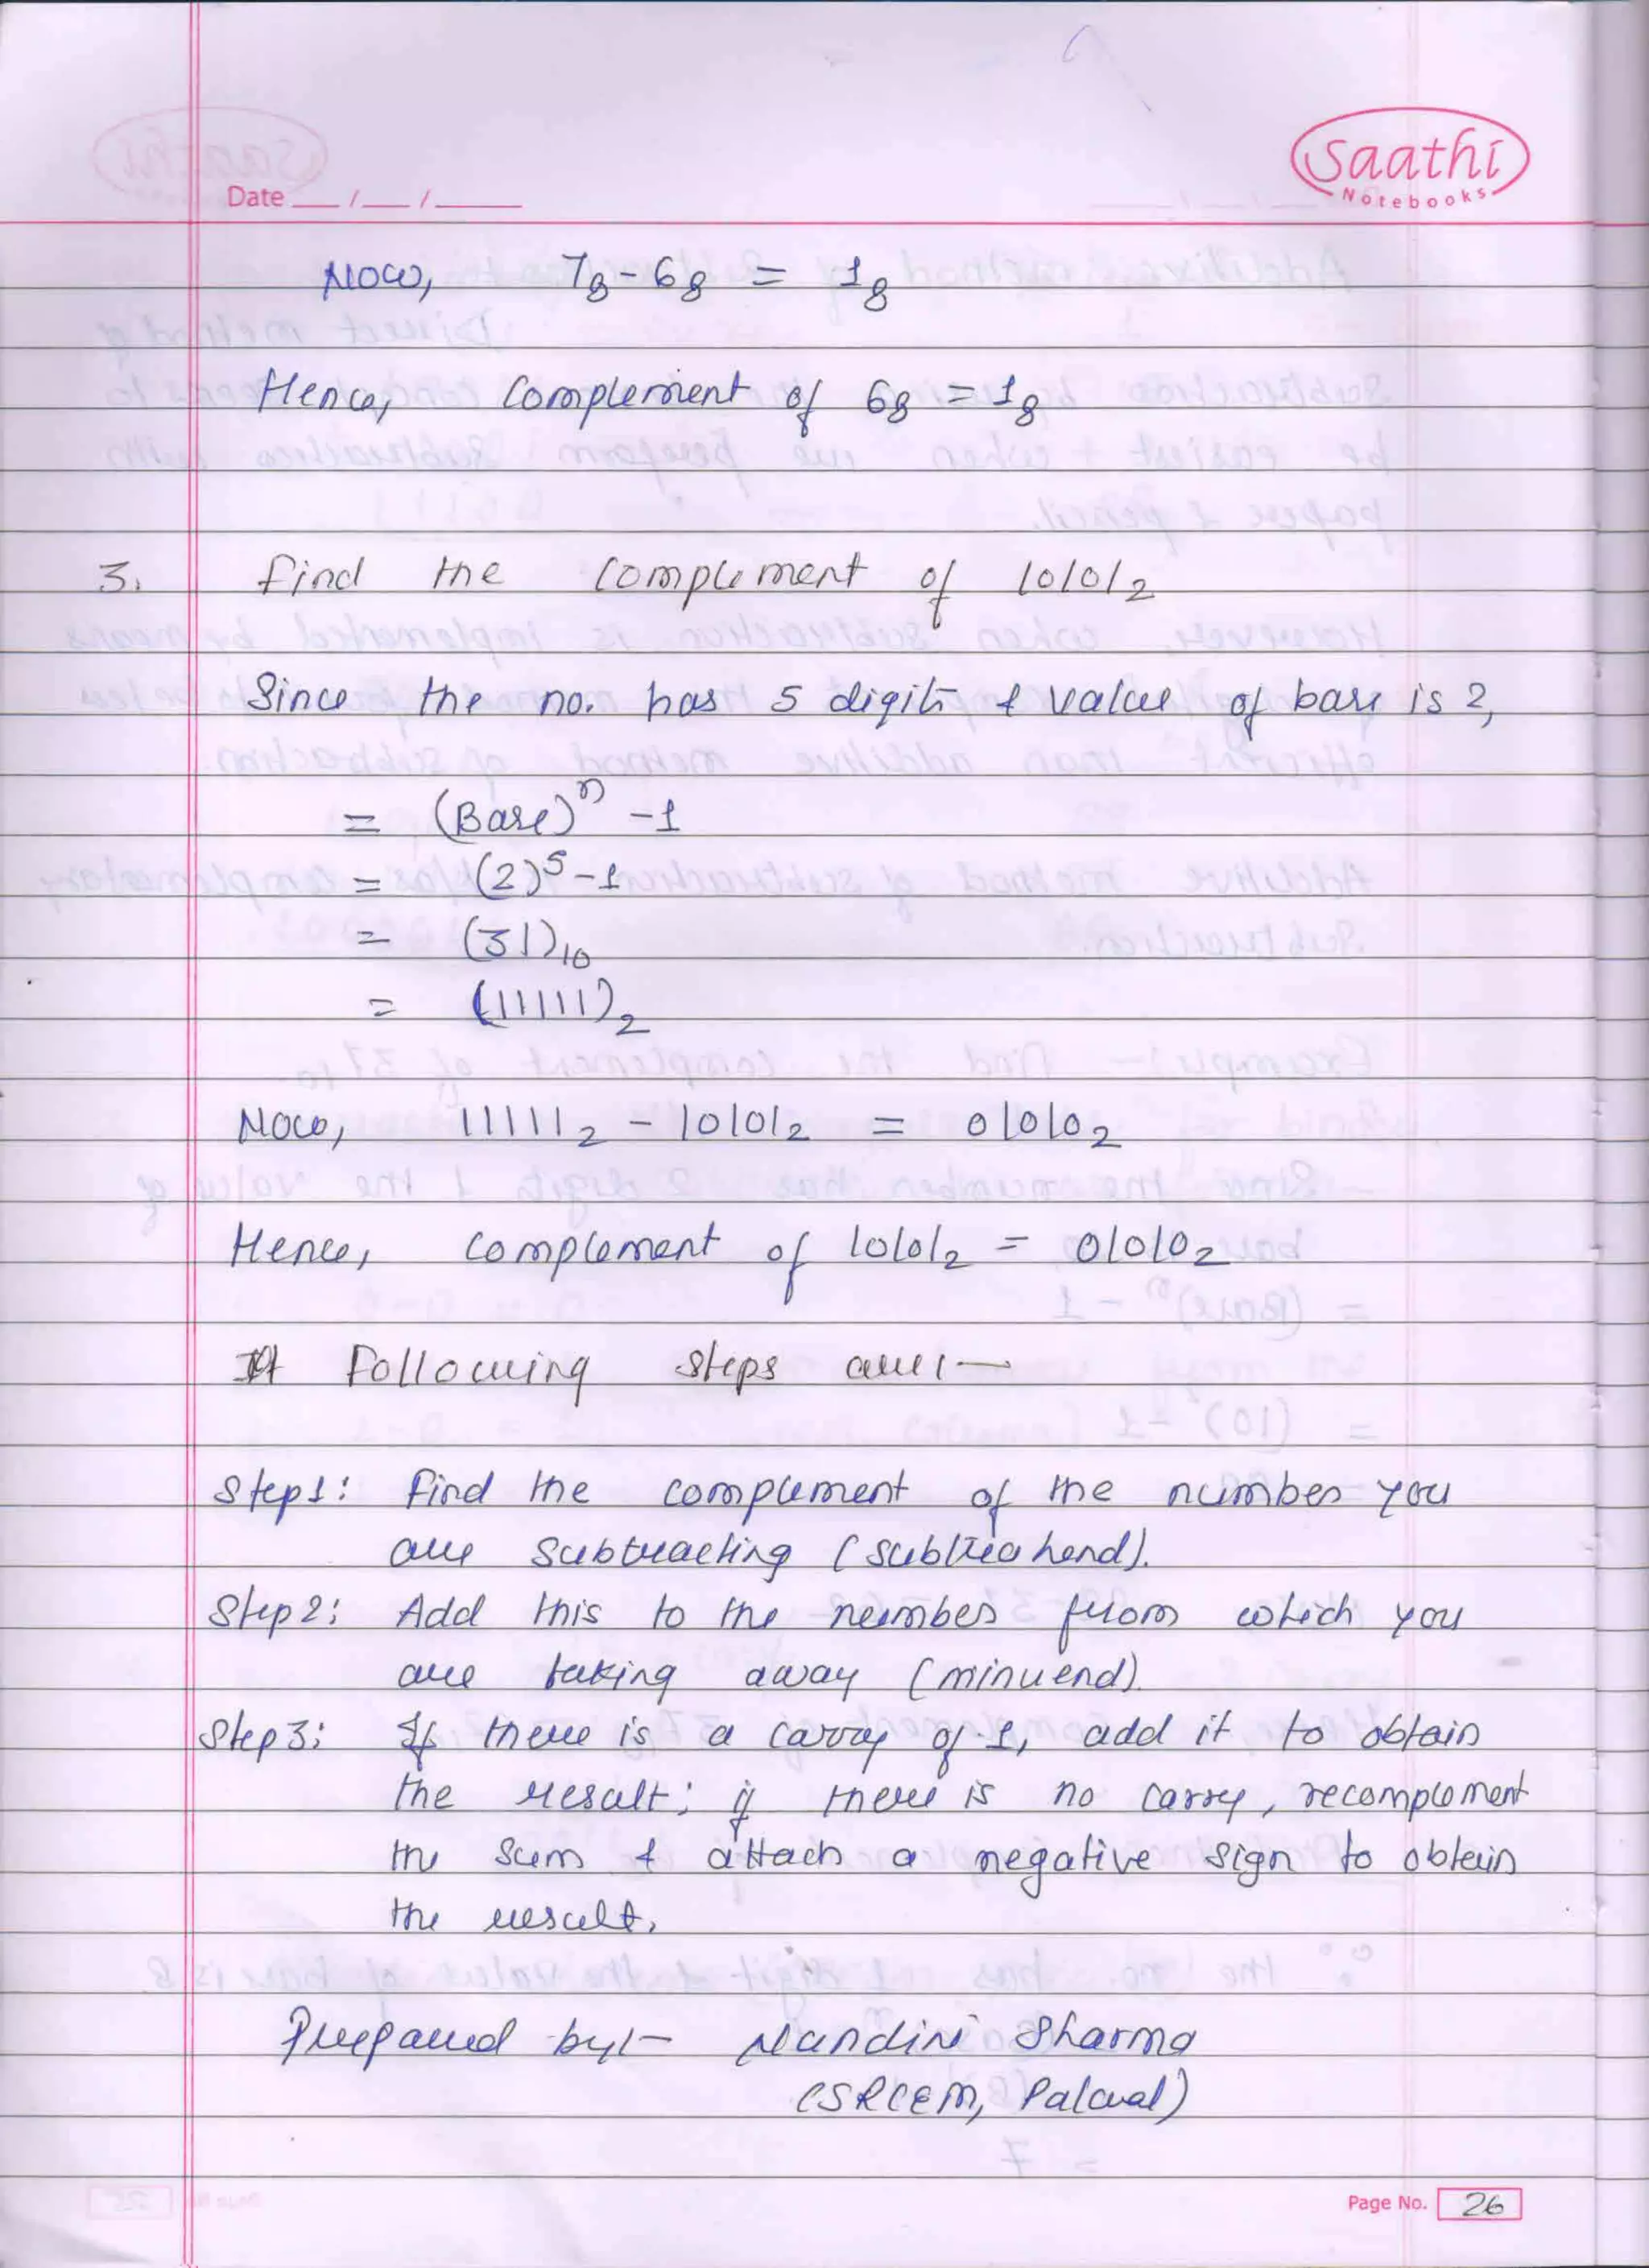 Saathi
Notebooks
Date __/__/____
Now, 7₈ - 6₈ = 1₈
Hence, Complement of 6₈ = 1₈
3. find the complement of 10101₂
Since the no. has 5 digits & value of base is 2,
= (Base)ⁿ - 1
= (2)⁵ - 1
= (31)₁₀
= (11111)₂
Now, 11111₂ - 10101₂ = 01010₂
Hence, complement of 10101₂ = 01010₂
Following steps are :-
Step1: Find the complement of the number you
are subtracting (subtrahend).
Step2: Add this to the number from which you
are taking away (minuend).
Step3: If there is a carry of 1, add it to obtain
the result; if there is no carry, recomplement
the sum & attach a negative sign to obtain
the result.
Prepared by:- Nandini Sharma
(SRCEM, Palwal)
Page No. 26